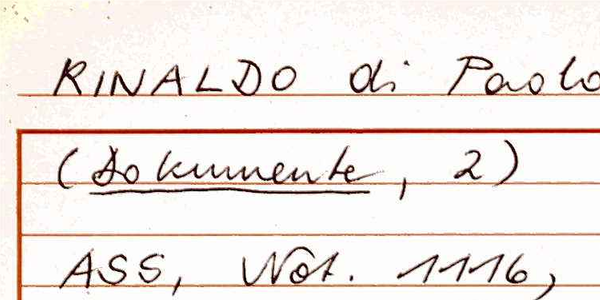 RINALDO di Paolo
(Dokumente, 2)
ASS, Not. 1116,